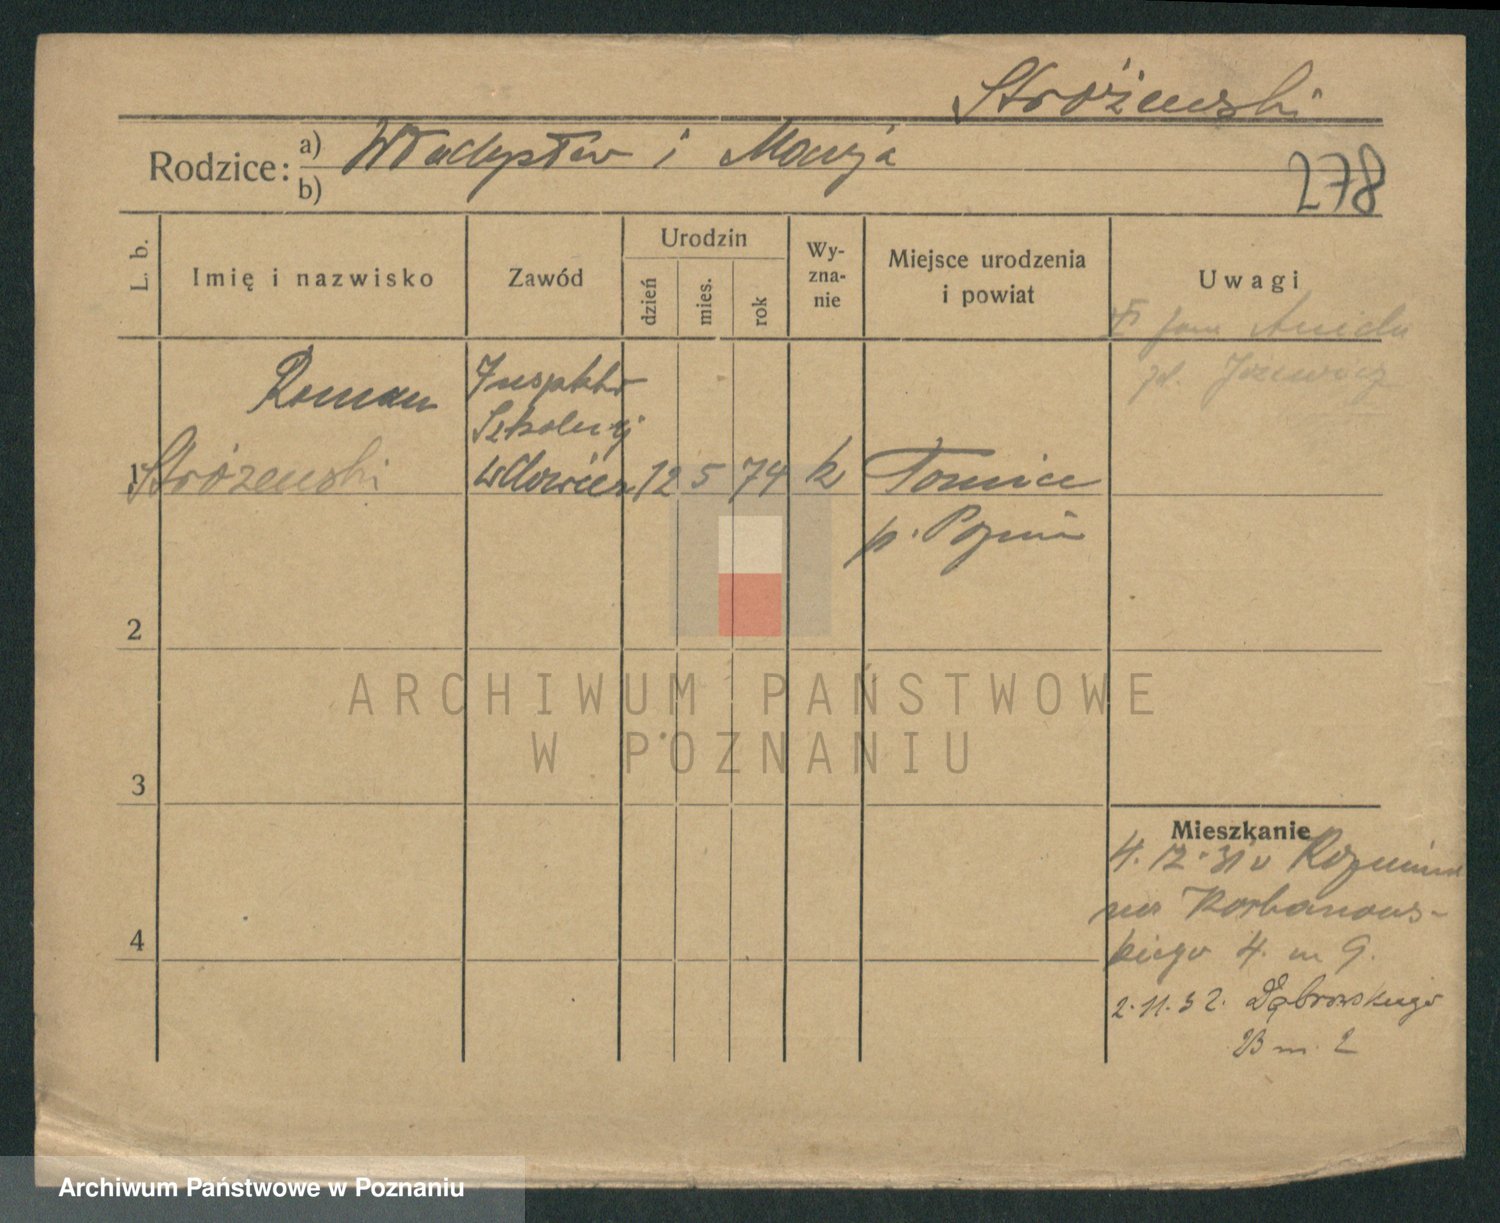 Stróżewski
Rodzice: a) Władysław i Marja
b)
278
L. b.
Imię i nazwisko
Zawód
Urodzin
dzień
mies.
rok
Wy-
zna-
nie
Miejsce urodzenia
i powiat
Uwagi
Jana Aniela
Roman
Inspektor
Szkolny
1 Stróżewski
wdowiec 12 5 74 k Łomnica
p.
2
3
4
Mieszkanie
4. 12. 31 u
kiego 4. m 9.
2. 11. 32. Dąbrowskiego
23 m. 2
ARCHIWUM PAŃSTWOWE
W POZNANIU
Archiwum Państwowe w Poznaniu